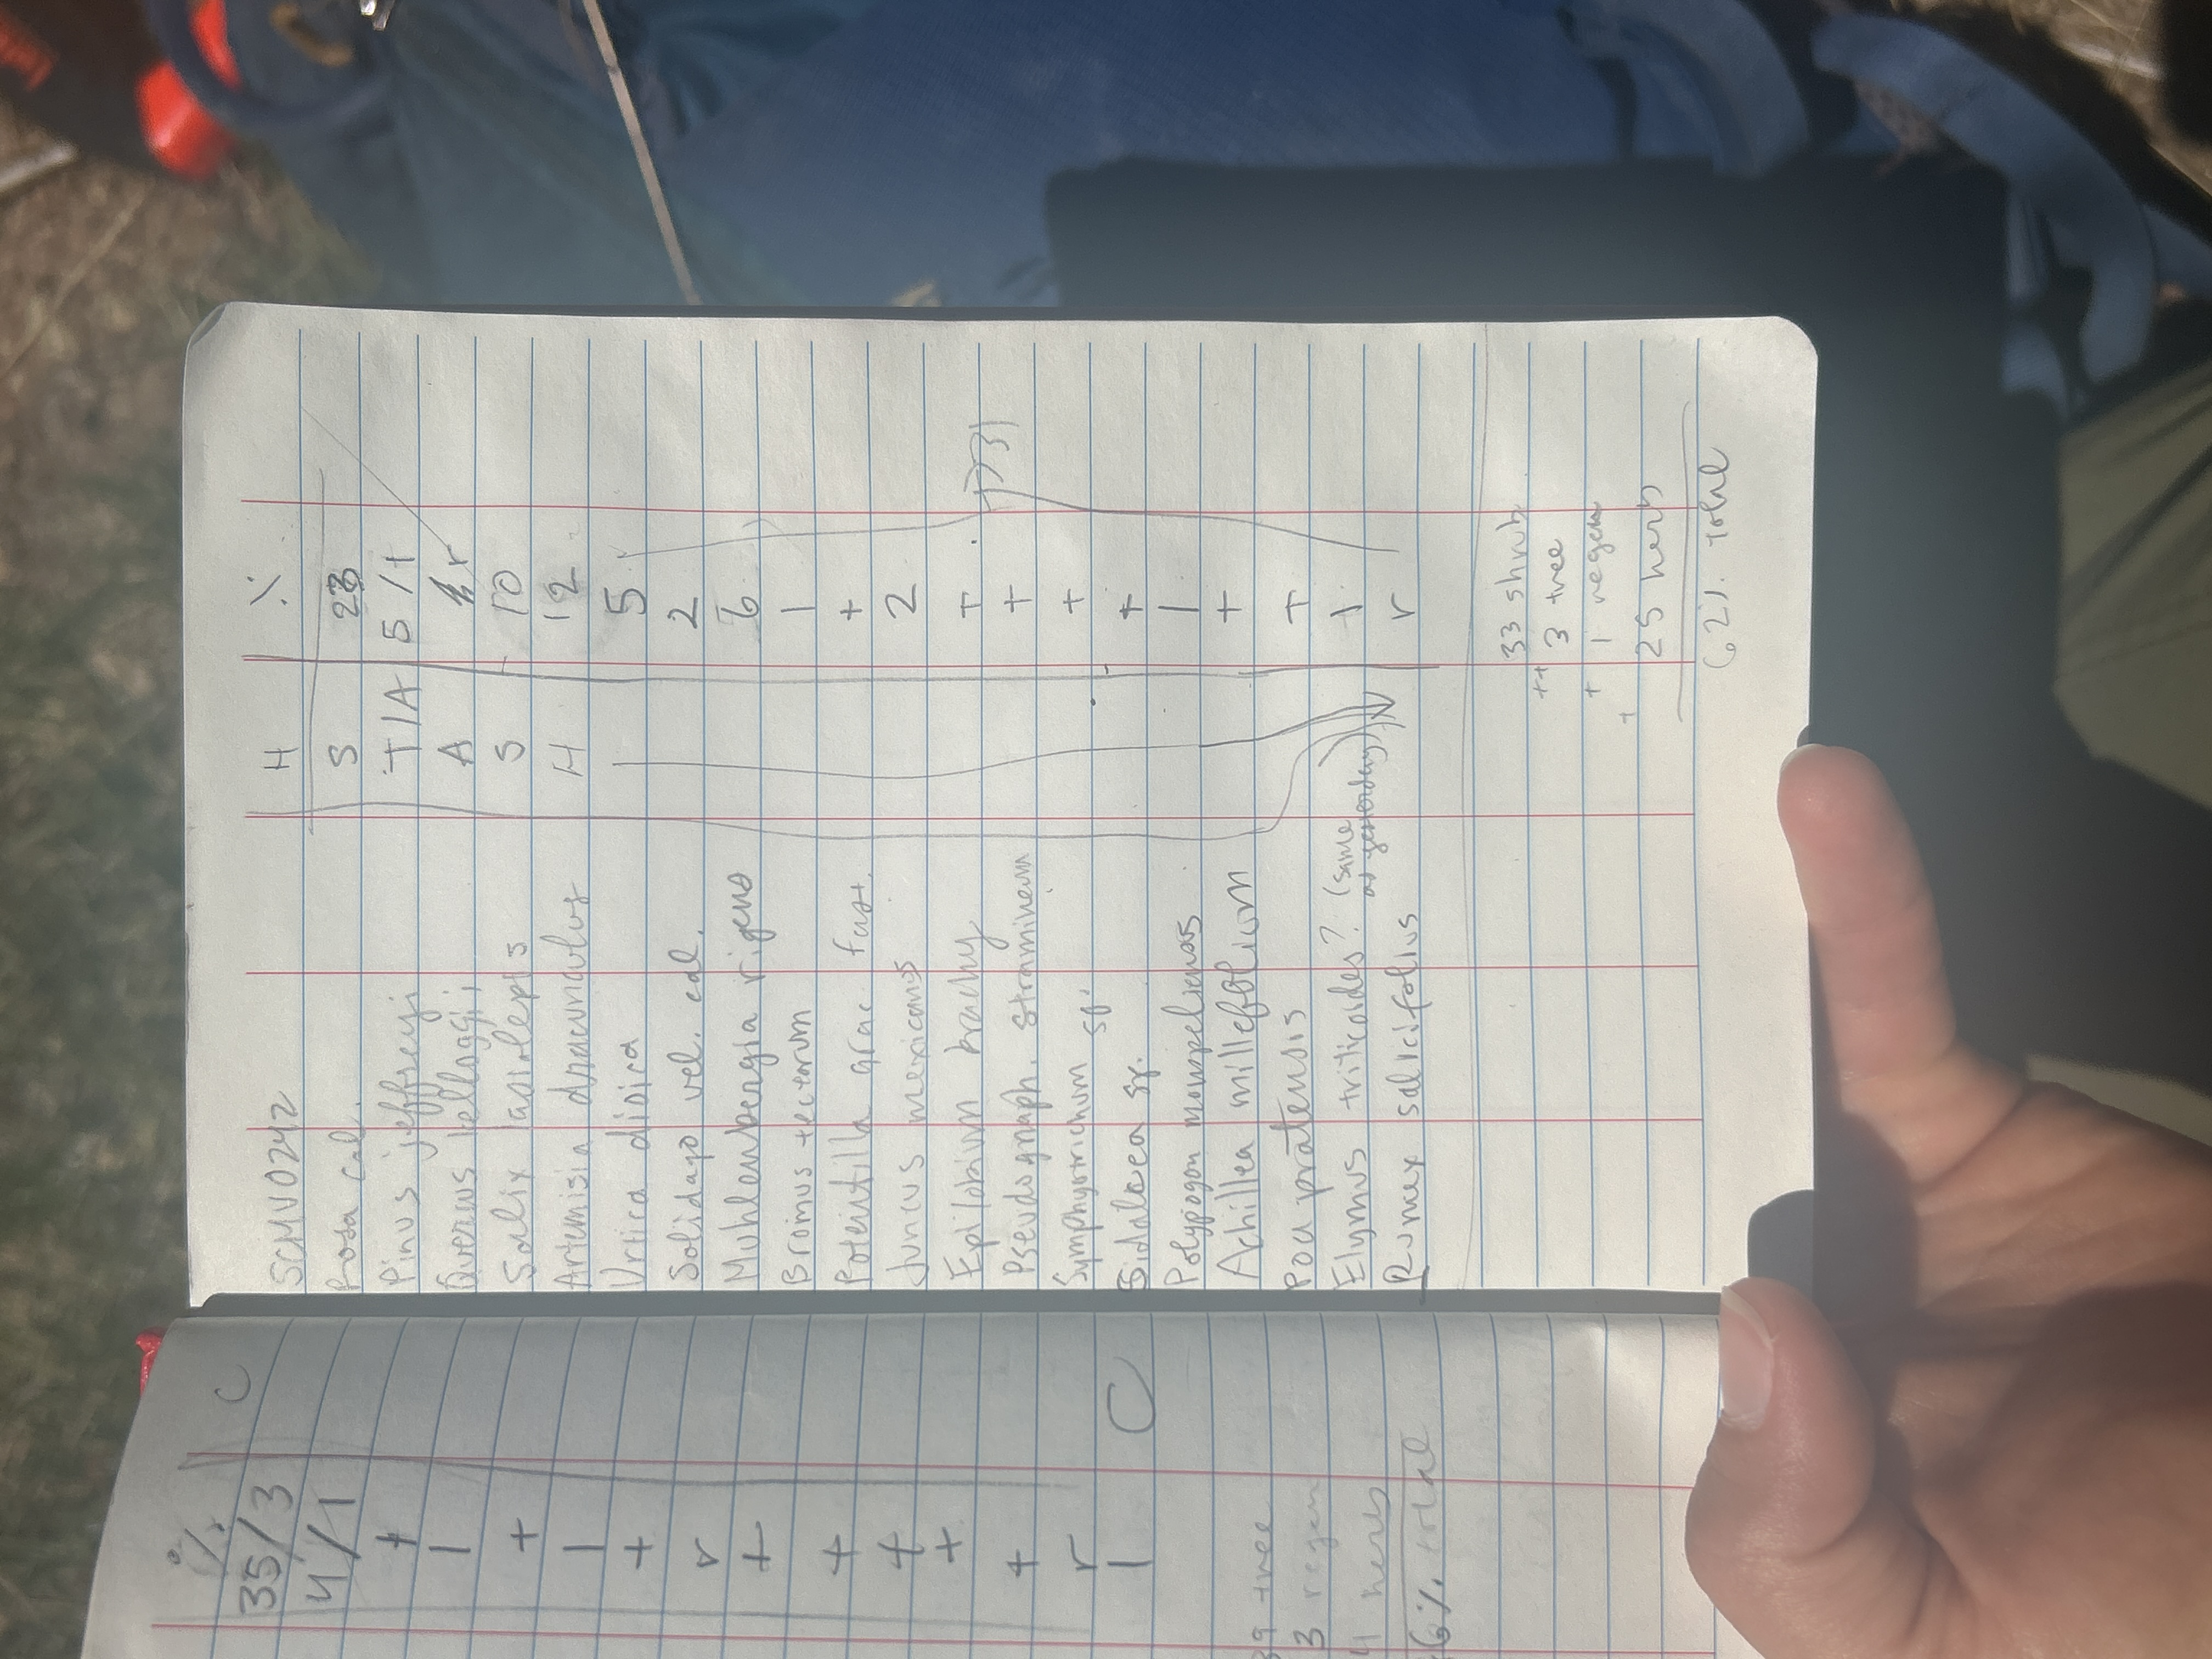 SCMV0242 H %
Rosa cal. S 23
Pinus jeffreyi T/A 5/1
Quercus kelloggii A r
Salix lasiolepis S 10
Artemisia dracunculus H 12
Urtica dioica 5
Solidago vel. cal. 2
Muhlenbergia rigens 6
Bromus tectorum 1
Potentilla grac. fast. +
Juncus mexicanus 2
Epilobium brachy +
Pseudognaph. stramineum +
Symphyotrichum sp. +
Sidalcea sp. +
Polypogon monspeliensis 1
Achillea millefolium +
Poa pratensis +
Elymus triticoides? (same as yesterday) +
Rumex salicifolius r
33 shrub
++ 3 tree
+ 1 regen
+ 25 herb
62% total
% C
35/3
4/1
+
1
+
1
+
r
+
+
+
+
+
r
1 C
39 tree
3 regen
4 herb
6% total